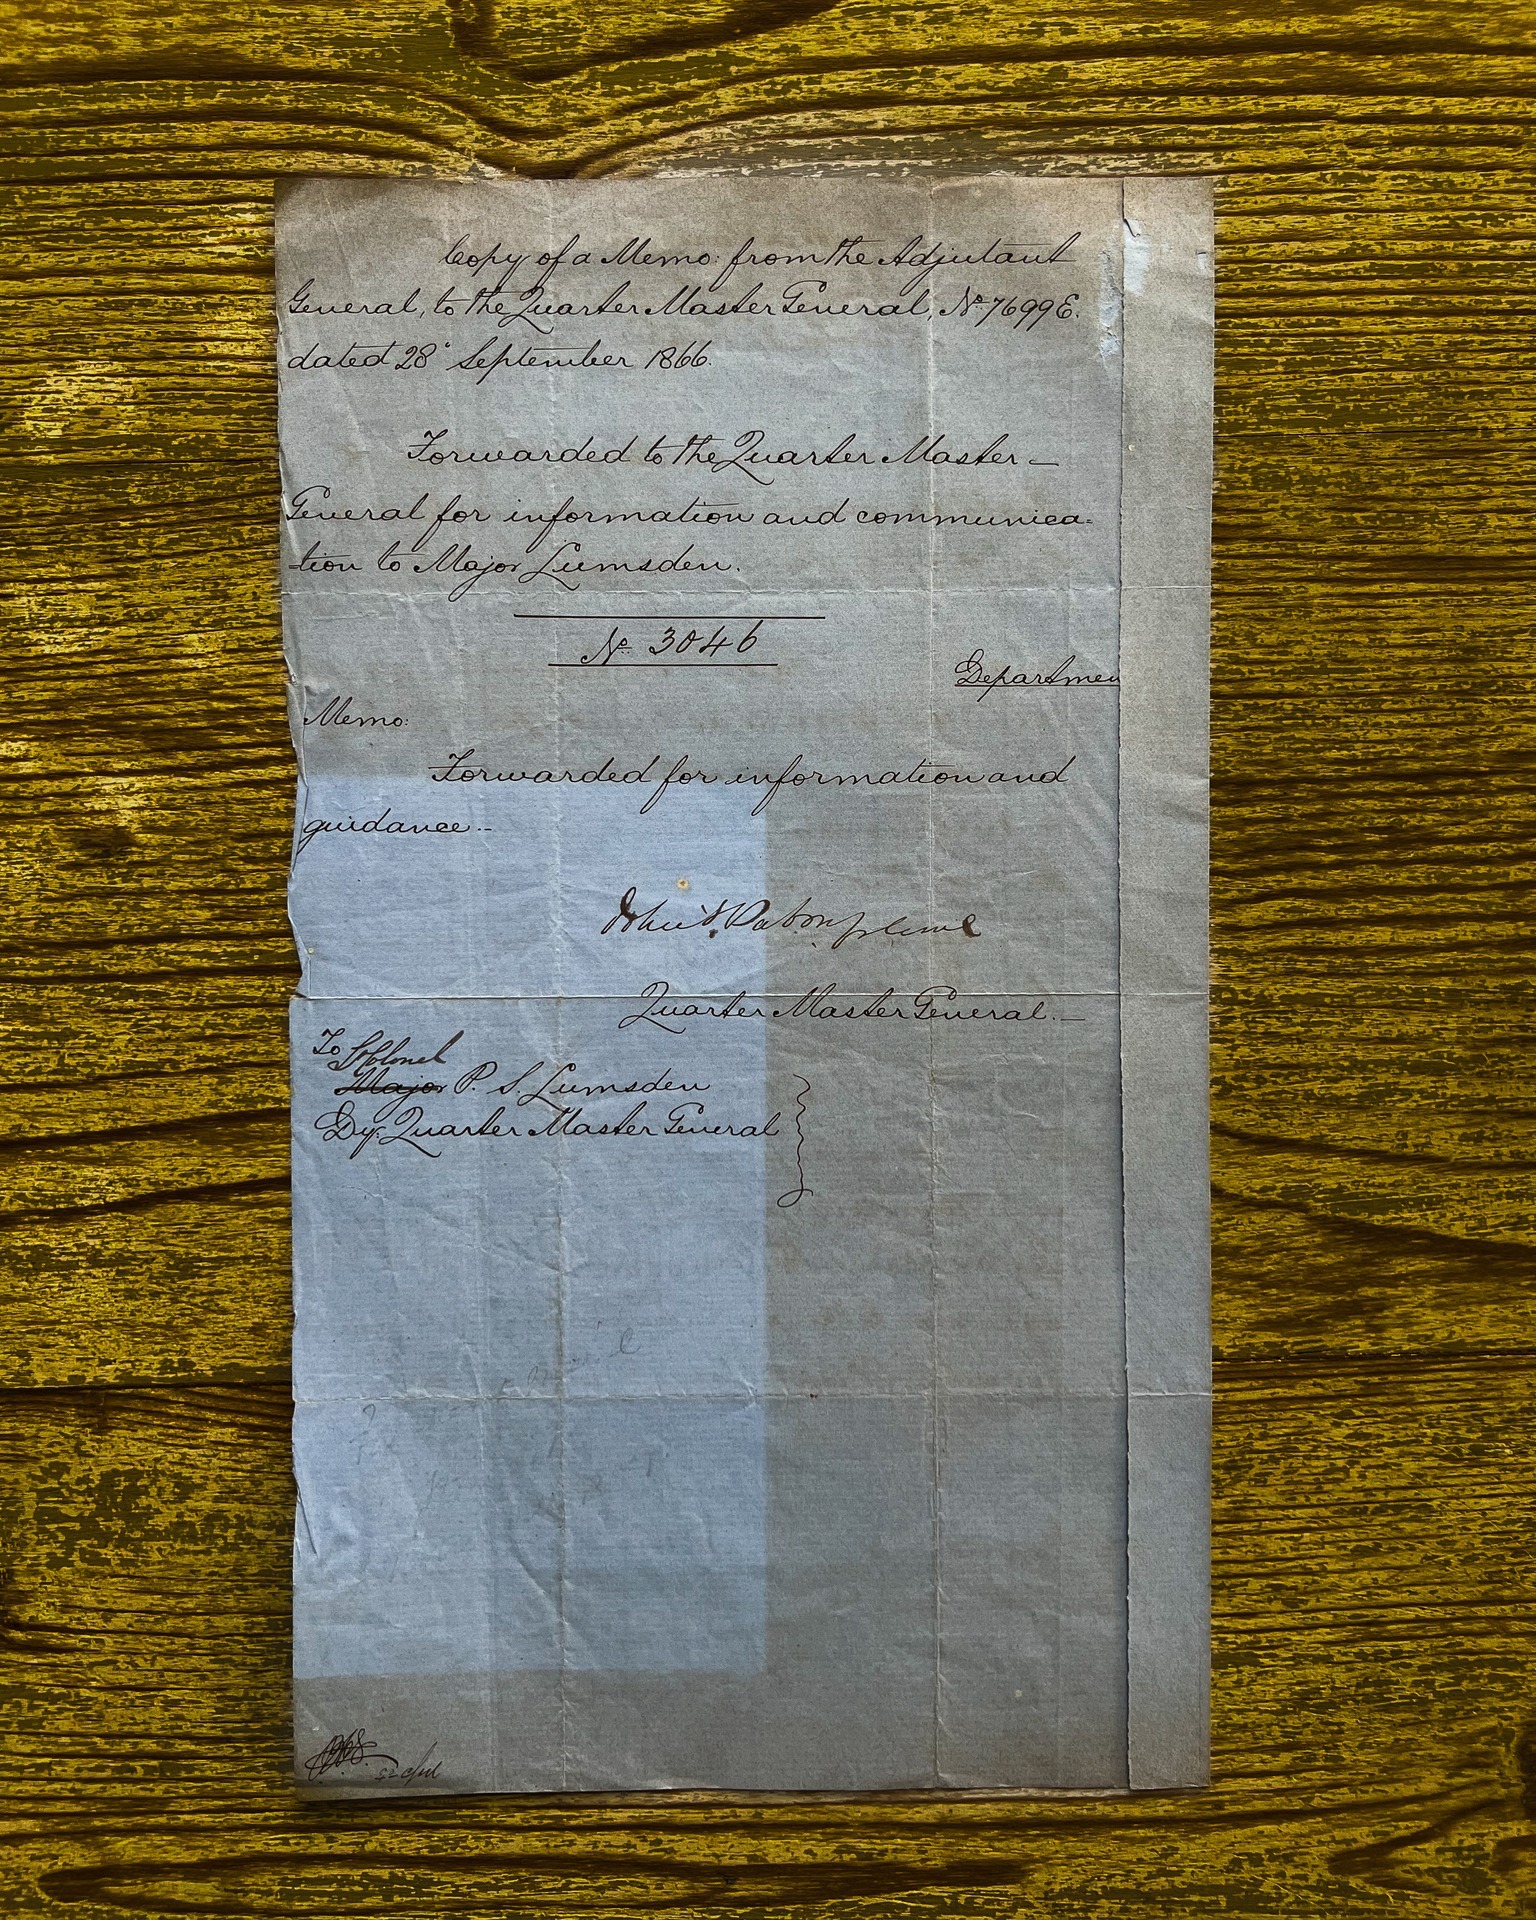 Copy of a Memo: from the Adjutant
General, to the Quarter Master General, No. 7699E.
dated 28 September 1866.
Forwarded to the Quarter Master –
General for information and communica=
tion to Major Lumsden.
No. 3046
Departmen
Memo:
Forwarded for information and
guidance..
Quarter Master General. –
To
Colonel
Major P. S. Lumsden
Dy: Quarter Master General